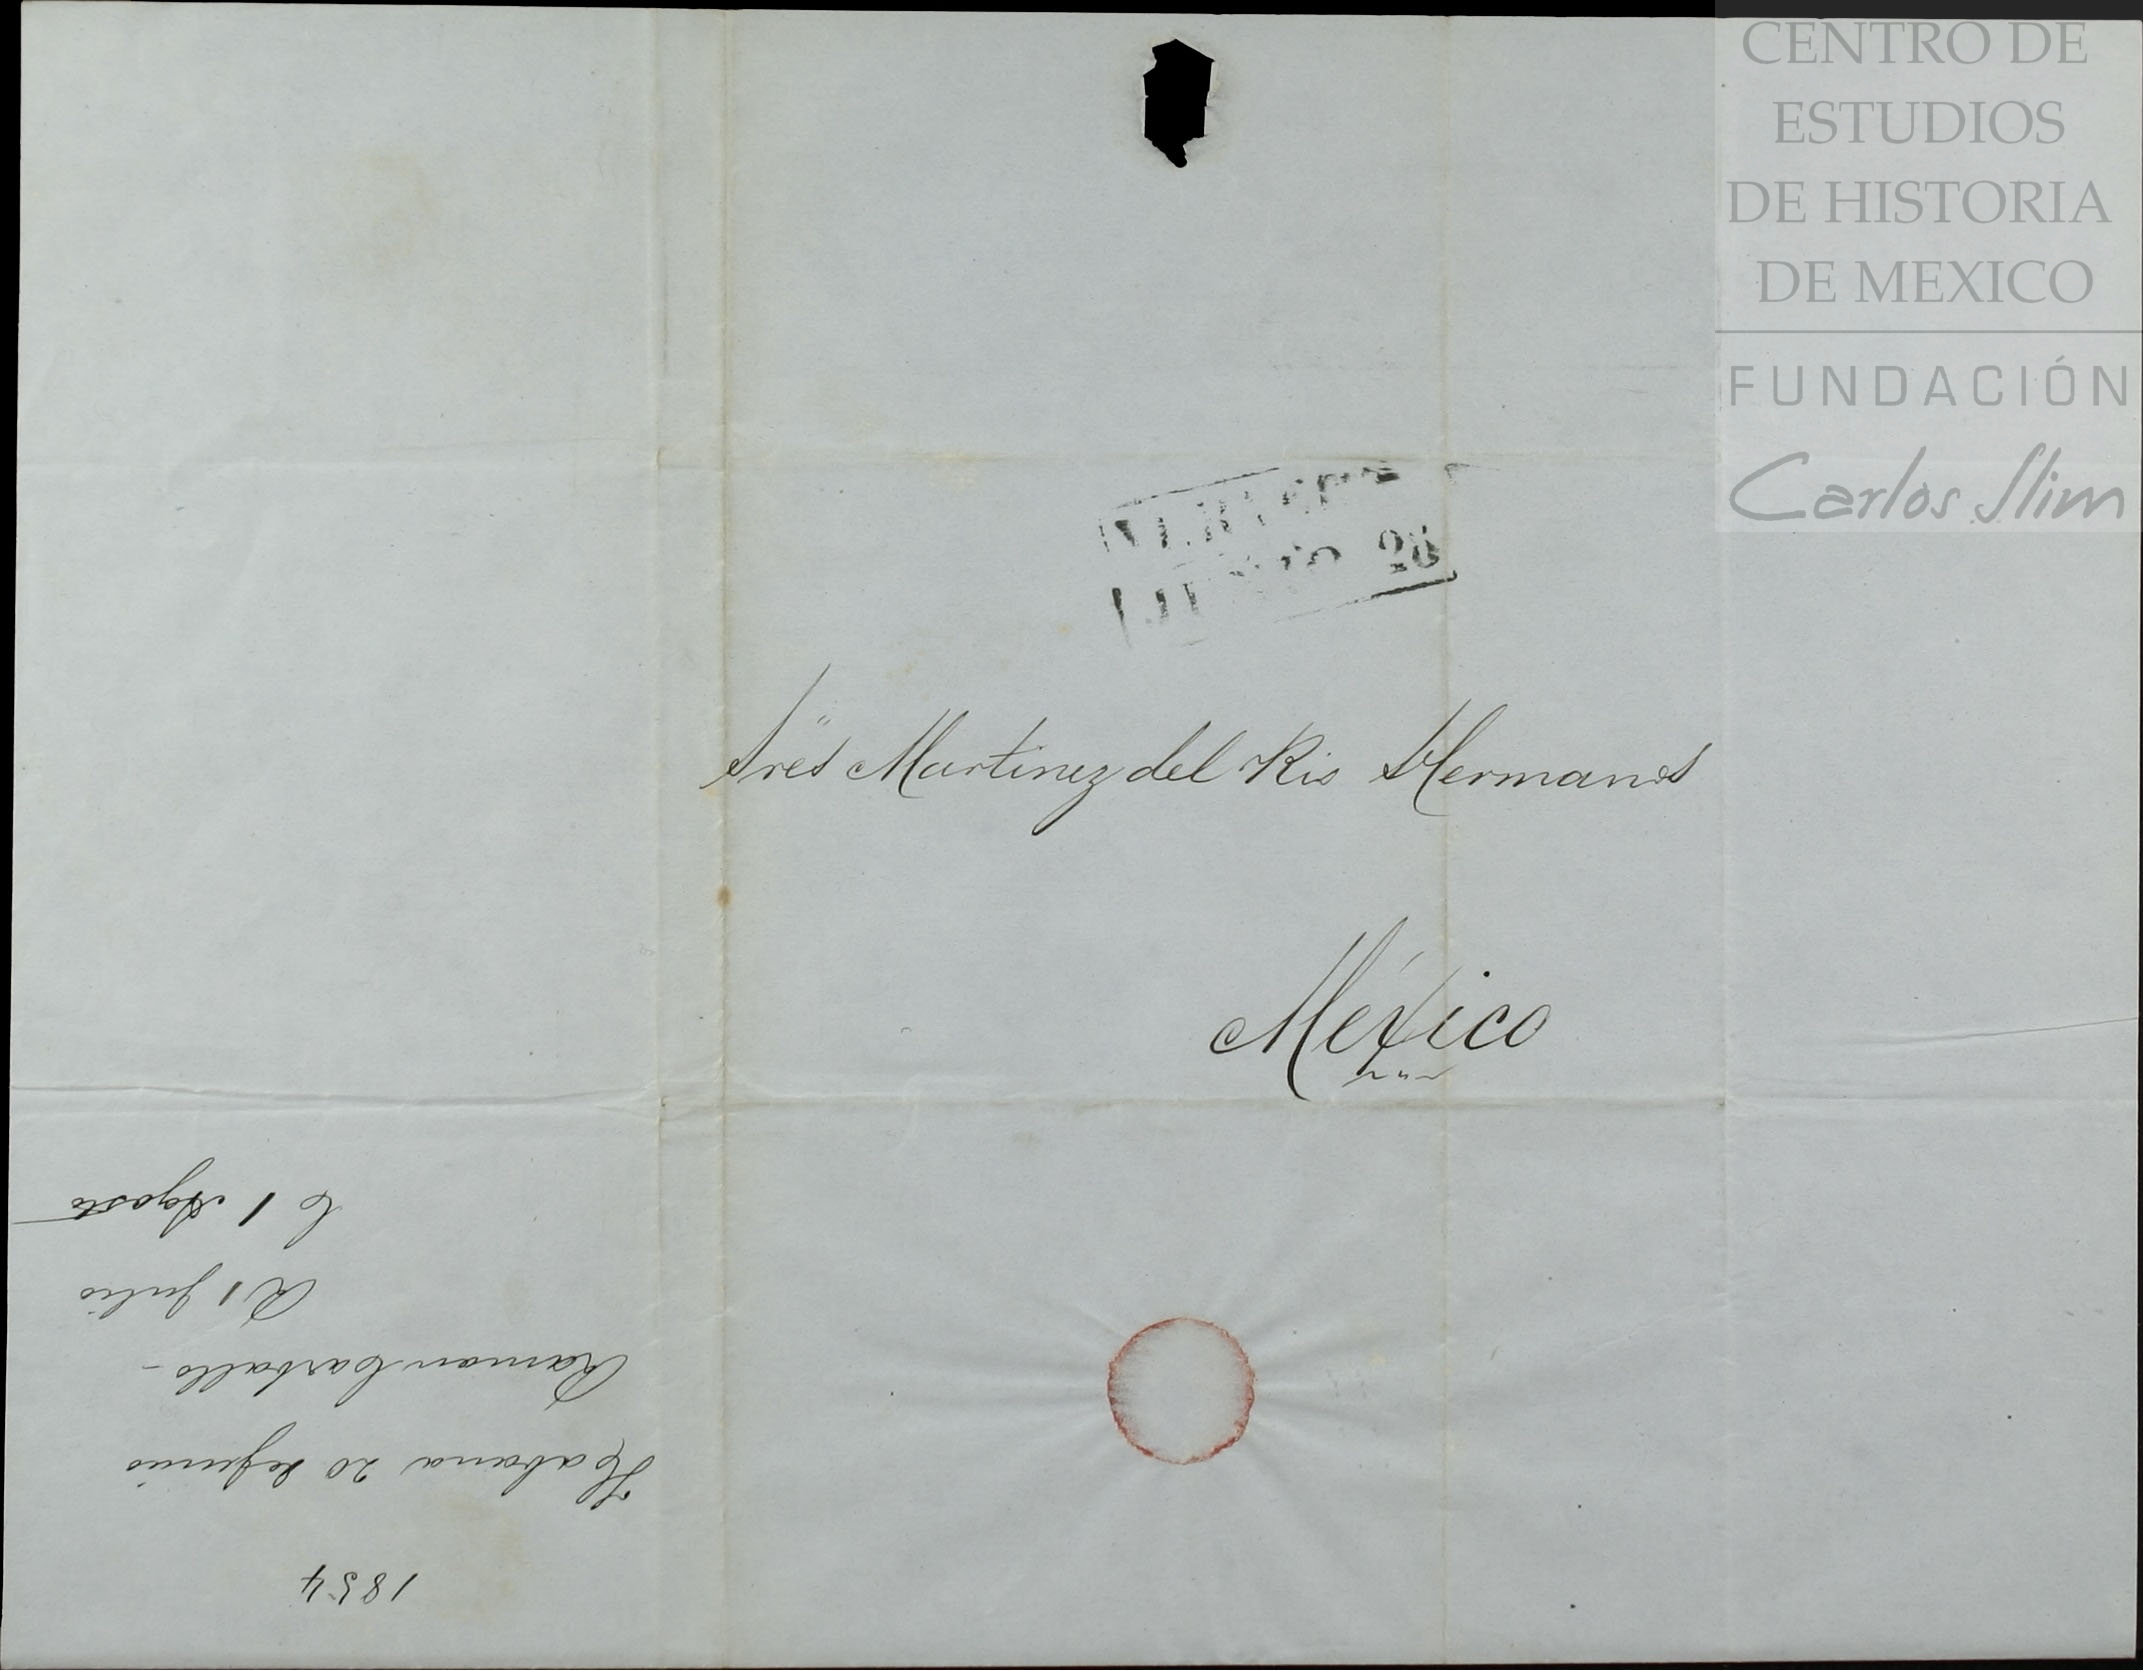 CENTRO DE
ESTUDIOS
DE HISTORIA
DE MEXICO
FUNDACIÓN
Carlos Slim
28
Sres Martinez del Rio Hermanos
México
1854
Habana 20 de junio
Ramon Carballo -
R 1 Julio
C 1 Agosto